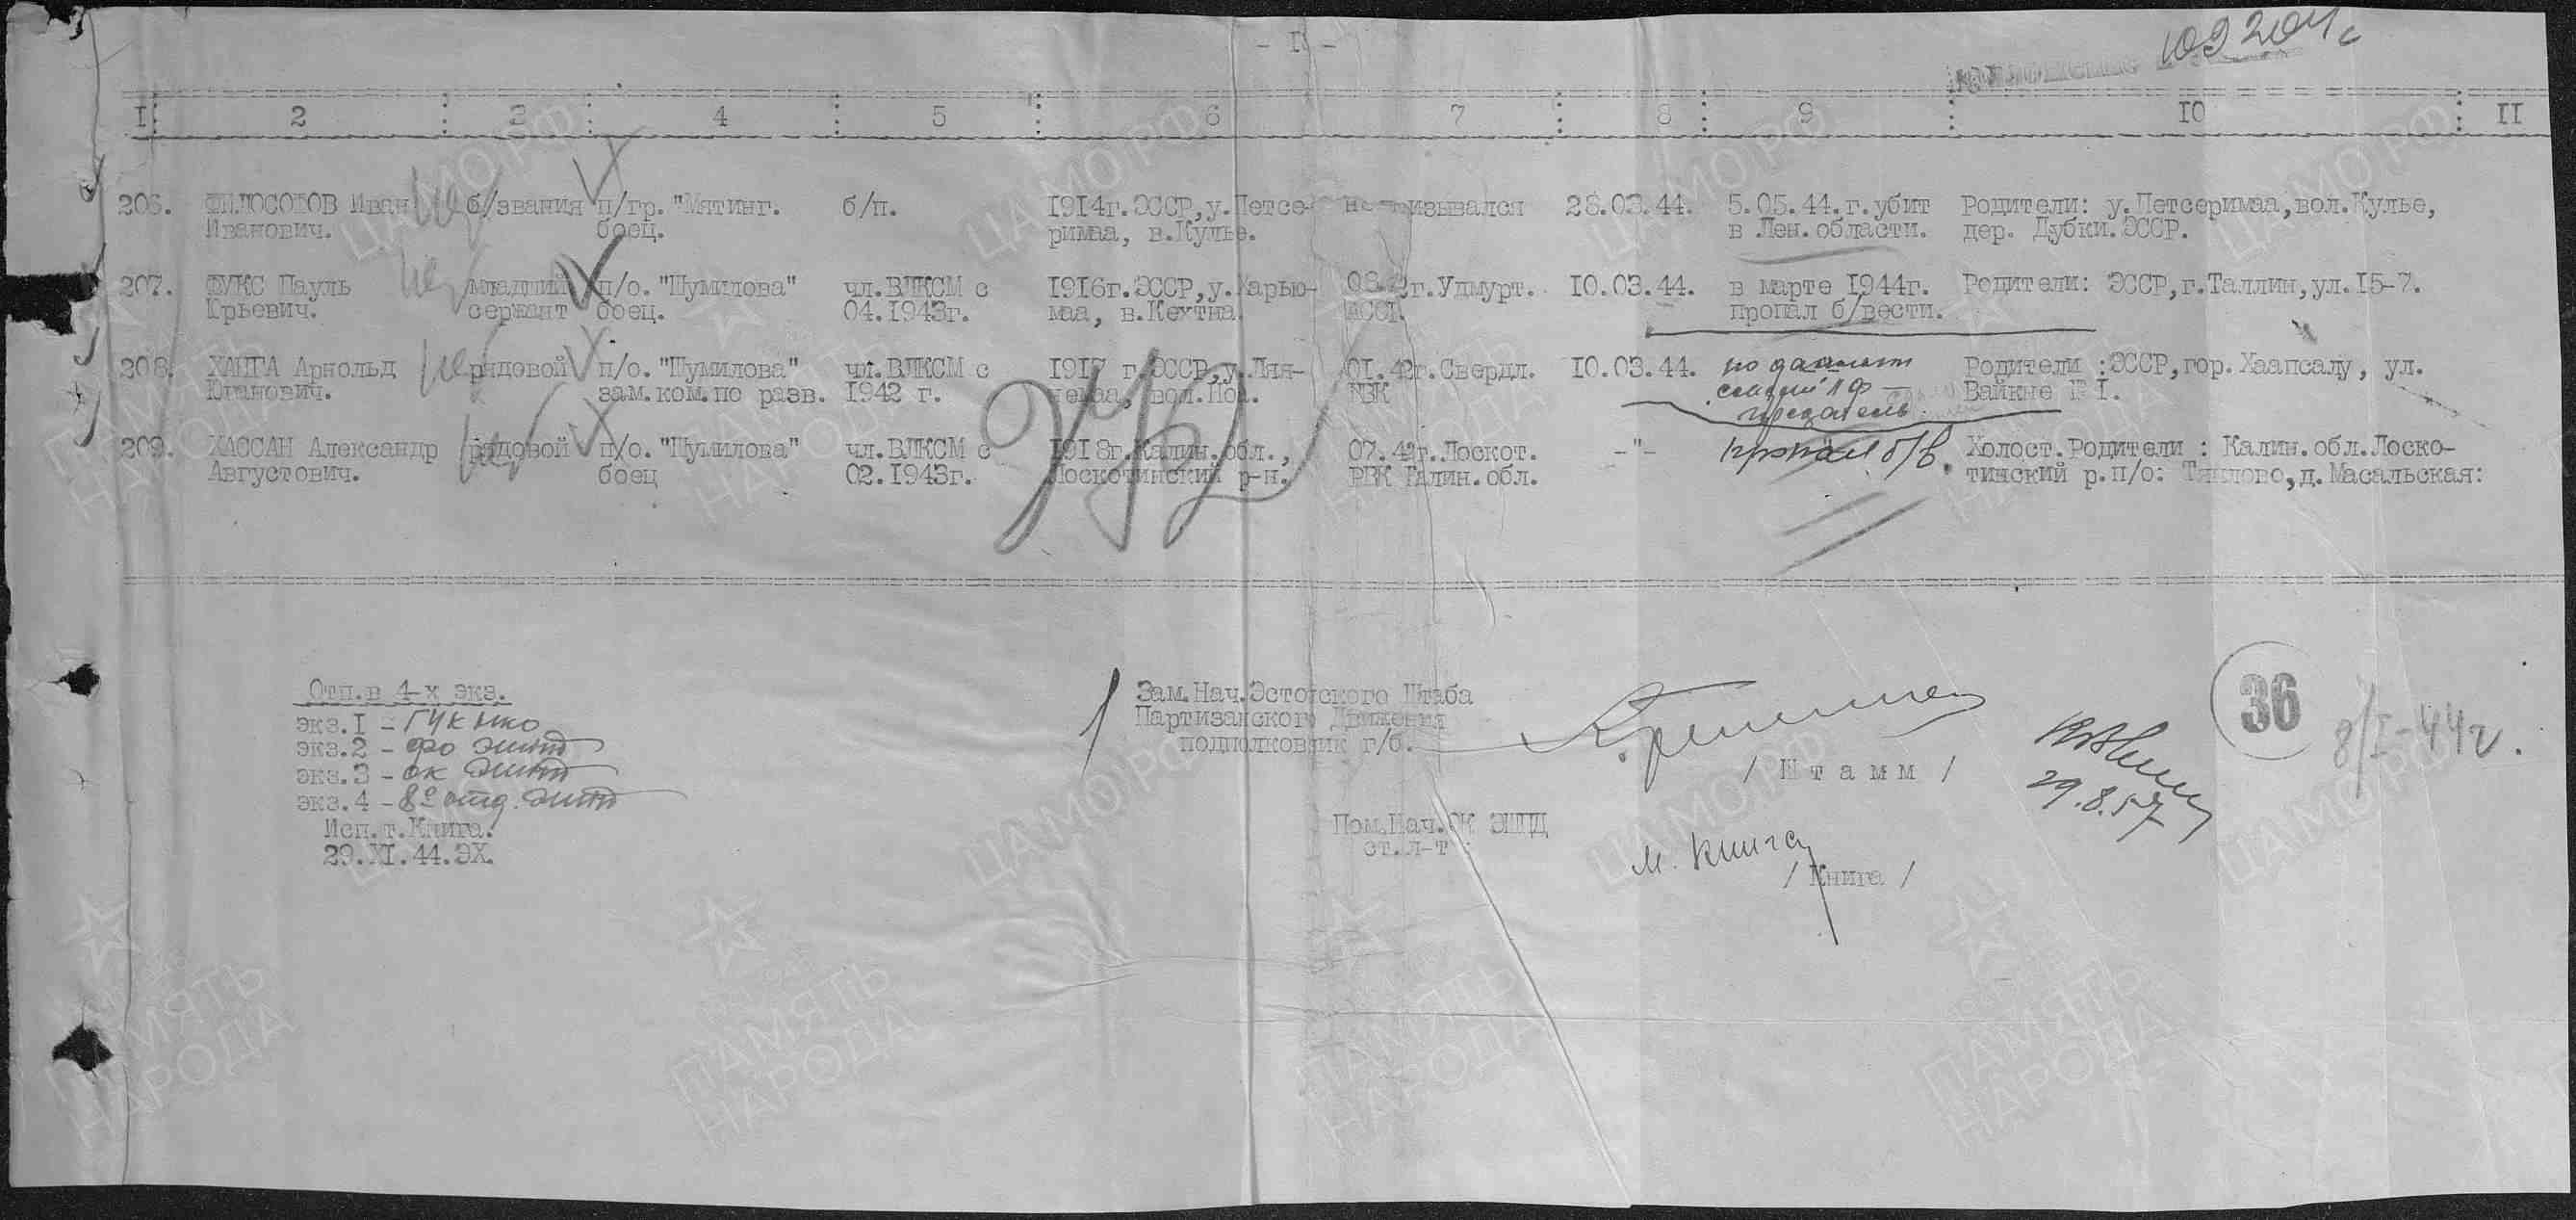 109204с
I 2 3 4 5 6 7 8 9 10 II
206. ФИЛОСОФОВ Иван б/звания п/гр. "Мятинг. б/п. 1914г.ЭССР,у.Петсе- не призывался 28.03.44. 5.05.44.г.убит Родители: у.Петсеримаа,вол.Кулье,
Иванович. боец. римаа, в.Кулье. в Лен.области. дер. Дубки.ЭССР.
207. ФУКС Пауль младший п/о. "Шумилова" чл.ВЛКСМ с 1916г.ЭССР,у.Харью- 08.42г.Удмурт. 10.03.44. в марте 1944г. Родители: ЭССР,г.Таллин,ул.15-7.
Юрьевич. сержант боец. 04.1943г. маа, в.Кехтна. АССР. пропал б/вести.
208. ХАНГА Арнольд рядовой п/о. "Шумилова" чл.ВЛКСМ с 1917 г.ЭССР,у.Ляя- 01.42г.Свердл. 10.03.44. по данным Родители :ЭССР,гор.Хаапсалу, ул.
Юганович. зам.ком.по разв. 1942 г. немаа, вол. РВК предатель Вайкне № I.
209. ХАССАН Александр рядовой п/о. "Шумилова" чл.ВЛКСМ с 1918г.Калин.обл., 07.42г.Лоскот. -"- пропал б/в. Холост.Родители : Калин.обл.Лоско-
Августович. боец 02.1943г. Лоскотинский р-н. РВК Калин.обл. тинский р.п/о: Тяплово,д.Масальская:
Отп.в 4-х экз.
экз.I - ГУК НКО
экз.2 - фо эшпд
экз.3 - ок эшпд
экз.4 - 8º отд. эшпд
Исп.т.Книга.
29.XI.44.ЭХ.
Зам.Нач.Эстонского Штаба
Партизанского Движения
подполковник г/б.
/ Штамм /
Пом.Нач.ОК ЭШПД
ст.л-т
М. Книга
/ Книга /
29.8.57
36
8/I-44г.
ЦАМО РФ
ПАМЯТЬ
НАРОДА